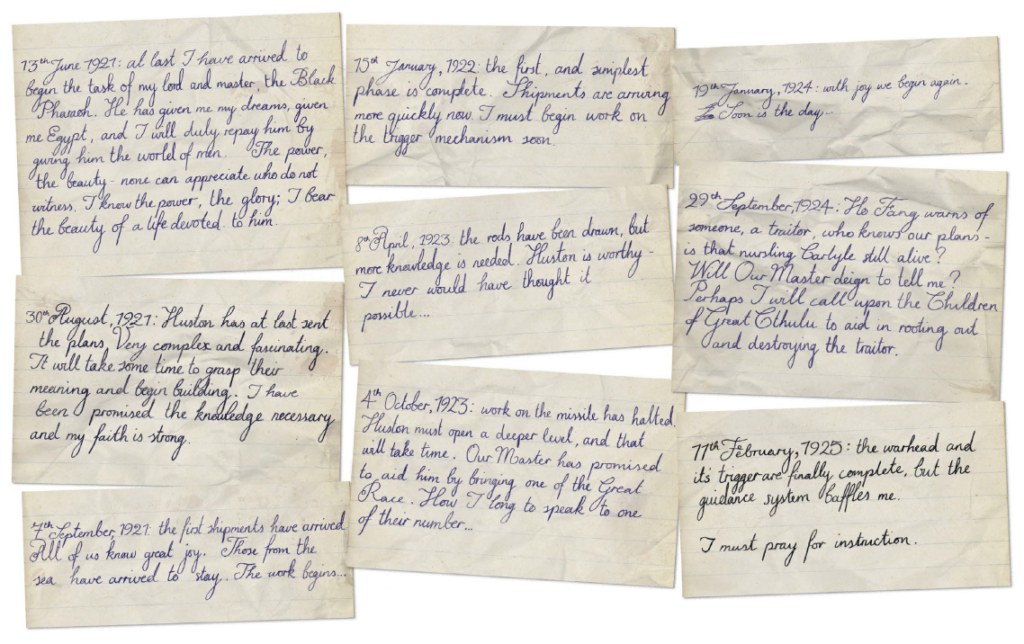 13th June 1921: at last I have arrived to
begin the task of my lord and master, the Black
Pharaoh. He has given me my dreams, given
me Egypt, and I will duly repay him by
giving him the world of men. The power,
the beauty - none can appreciate who do not
witness. I know the power, the glory; I bear
the beauty of a life devoted to him.
30th August, 1921: Huston has at last sent
the plans. Very complex and fascinating.
It will take some time to grasp their
meaning and begin building. I have
been promised the knowledge necessary
and my faith is strong.
7th September, 1921: the first shipments have arrived
All of us know great joy. Those from the
sea have arrived to stay. The work begins...
15th January, 1922: the first, and simplest
phase is complete. Shipments are arriving
more quickly now. I must begin work on
the trigger mechanism soon.
8th April, 1923: the rods have been drawn, but
more knowledge is needed. Huston is worthy -
I never would have thought it
possible...
4th October, 1923: work on the missile has halted.
Huston must open a deeper level, and that
will take time. Our Master has promised
to aid him by bringing one of the Great
Race. How I long to speak to one
of their number...
19th January, 1924: with joy we begin again.
Soon is the day...
29th September, 1924: Ho Fang warns of
someone, a traitor, who knows our plans -
is that nursling Carlyle still alive?
Will Our Master deign to tell me?
Perhaps I will call upon the Children
of Great Cthulu to aid in rooting out
and destroying the traitor.
11th February, 1925: the warhead and
its trigger are finally complete, but the
guidance system baffles me.
I must pray for instruction.